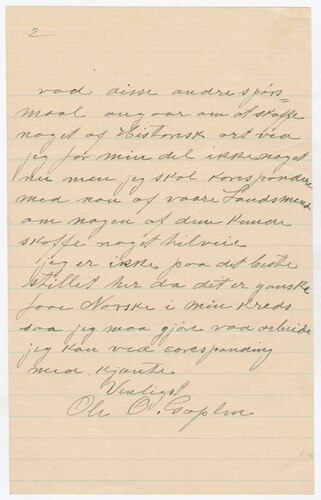 2
vad disse andre spörs=
maal angaar om at skaffe
noget af Historisk art ved
jeg for min del ikke noget
nu men jeg skal korespondere
med non af vaare Landsmend
om nogen af dem kunde
skaffe noget tilveie
jeg er ikke paa det beste
stillet her da dit er ganske
faae Norske i min Kreds
saa jeg maa gjöre vad arbeide
jeg kan ved coresponding
med kjente
Venligst
Ole O.